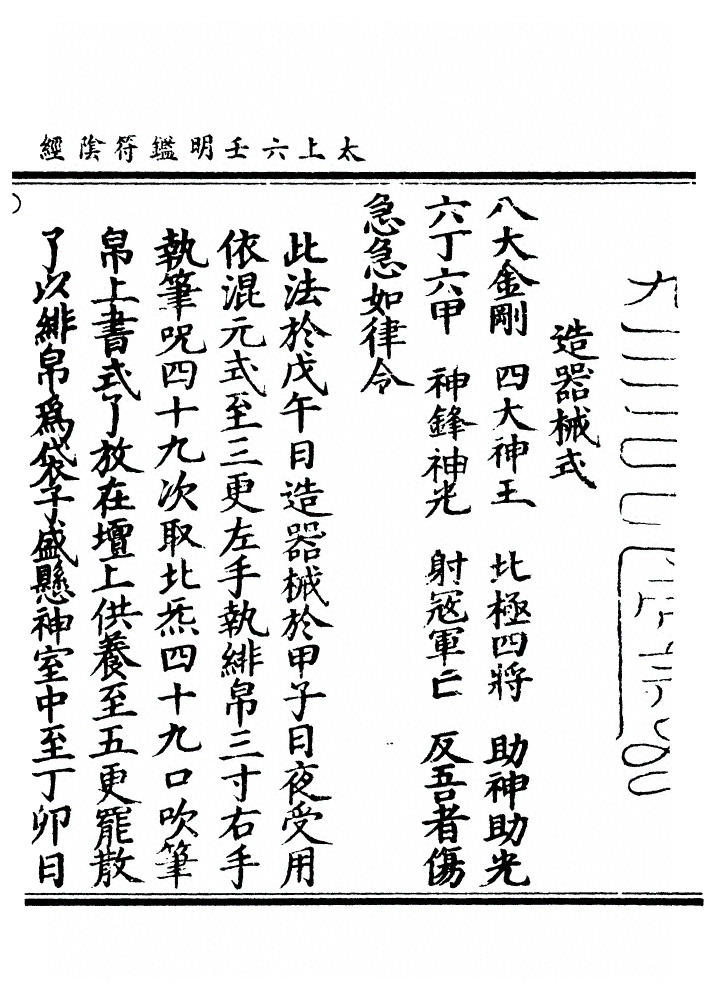 太上六壬明鑑符陰經
造器械式
八大金剛　四大神王　北極四將　助神助光
六丁六甲　神鋒神光　射冦軍亡　反吾者傷
急急如律令
此法於戊午日造器械於甲子日夜受用
依混元式至三更左手執緋帛三寸右手
執筆呪四十九次取北炁四十九口吹筆
帛上書式了放在壇上供養至五更罷散
了以緋帛爲袋子盛懸神室中至丁卯日